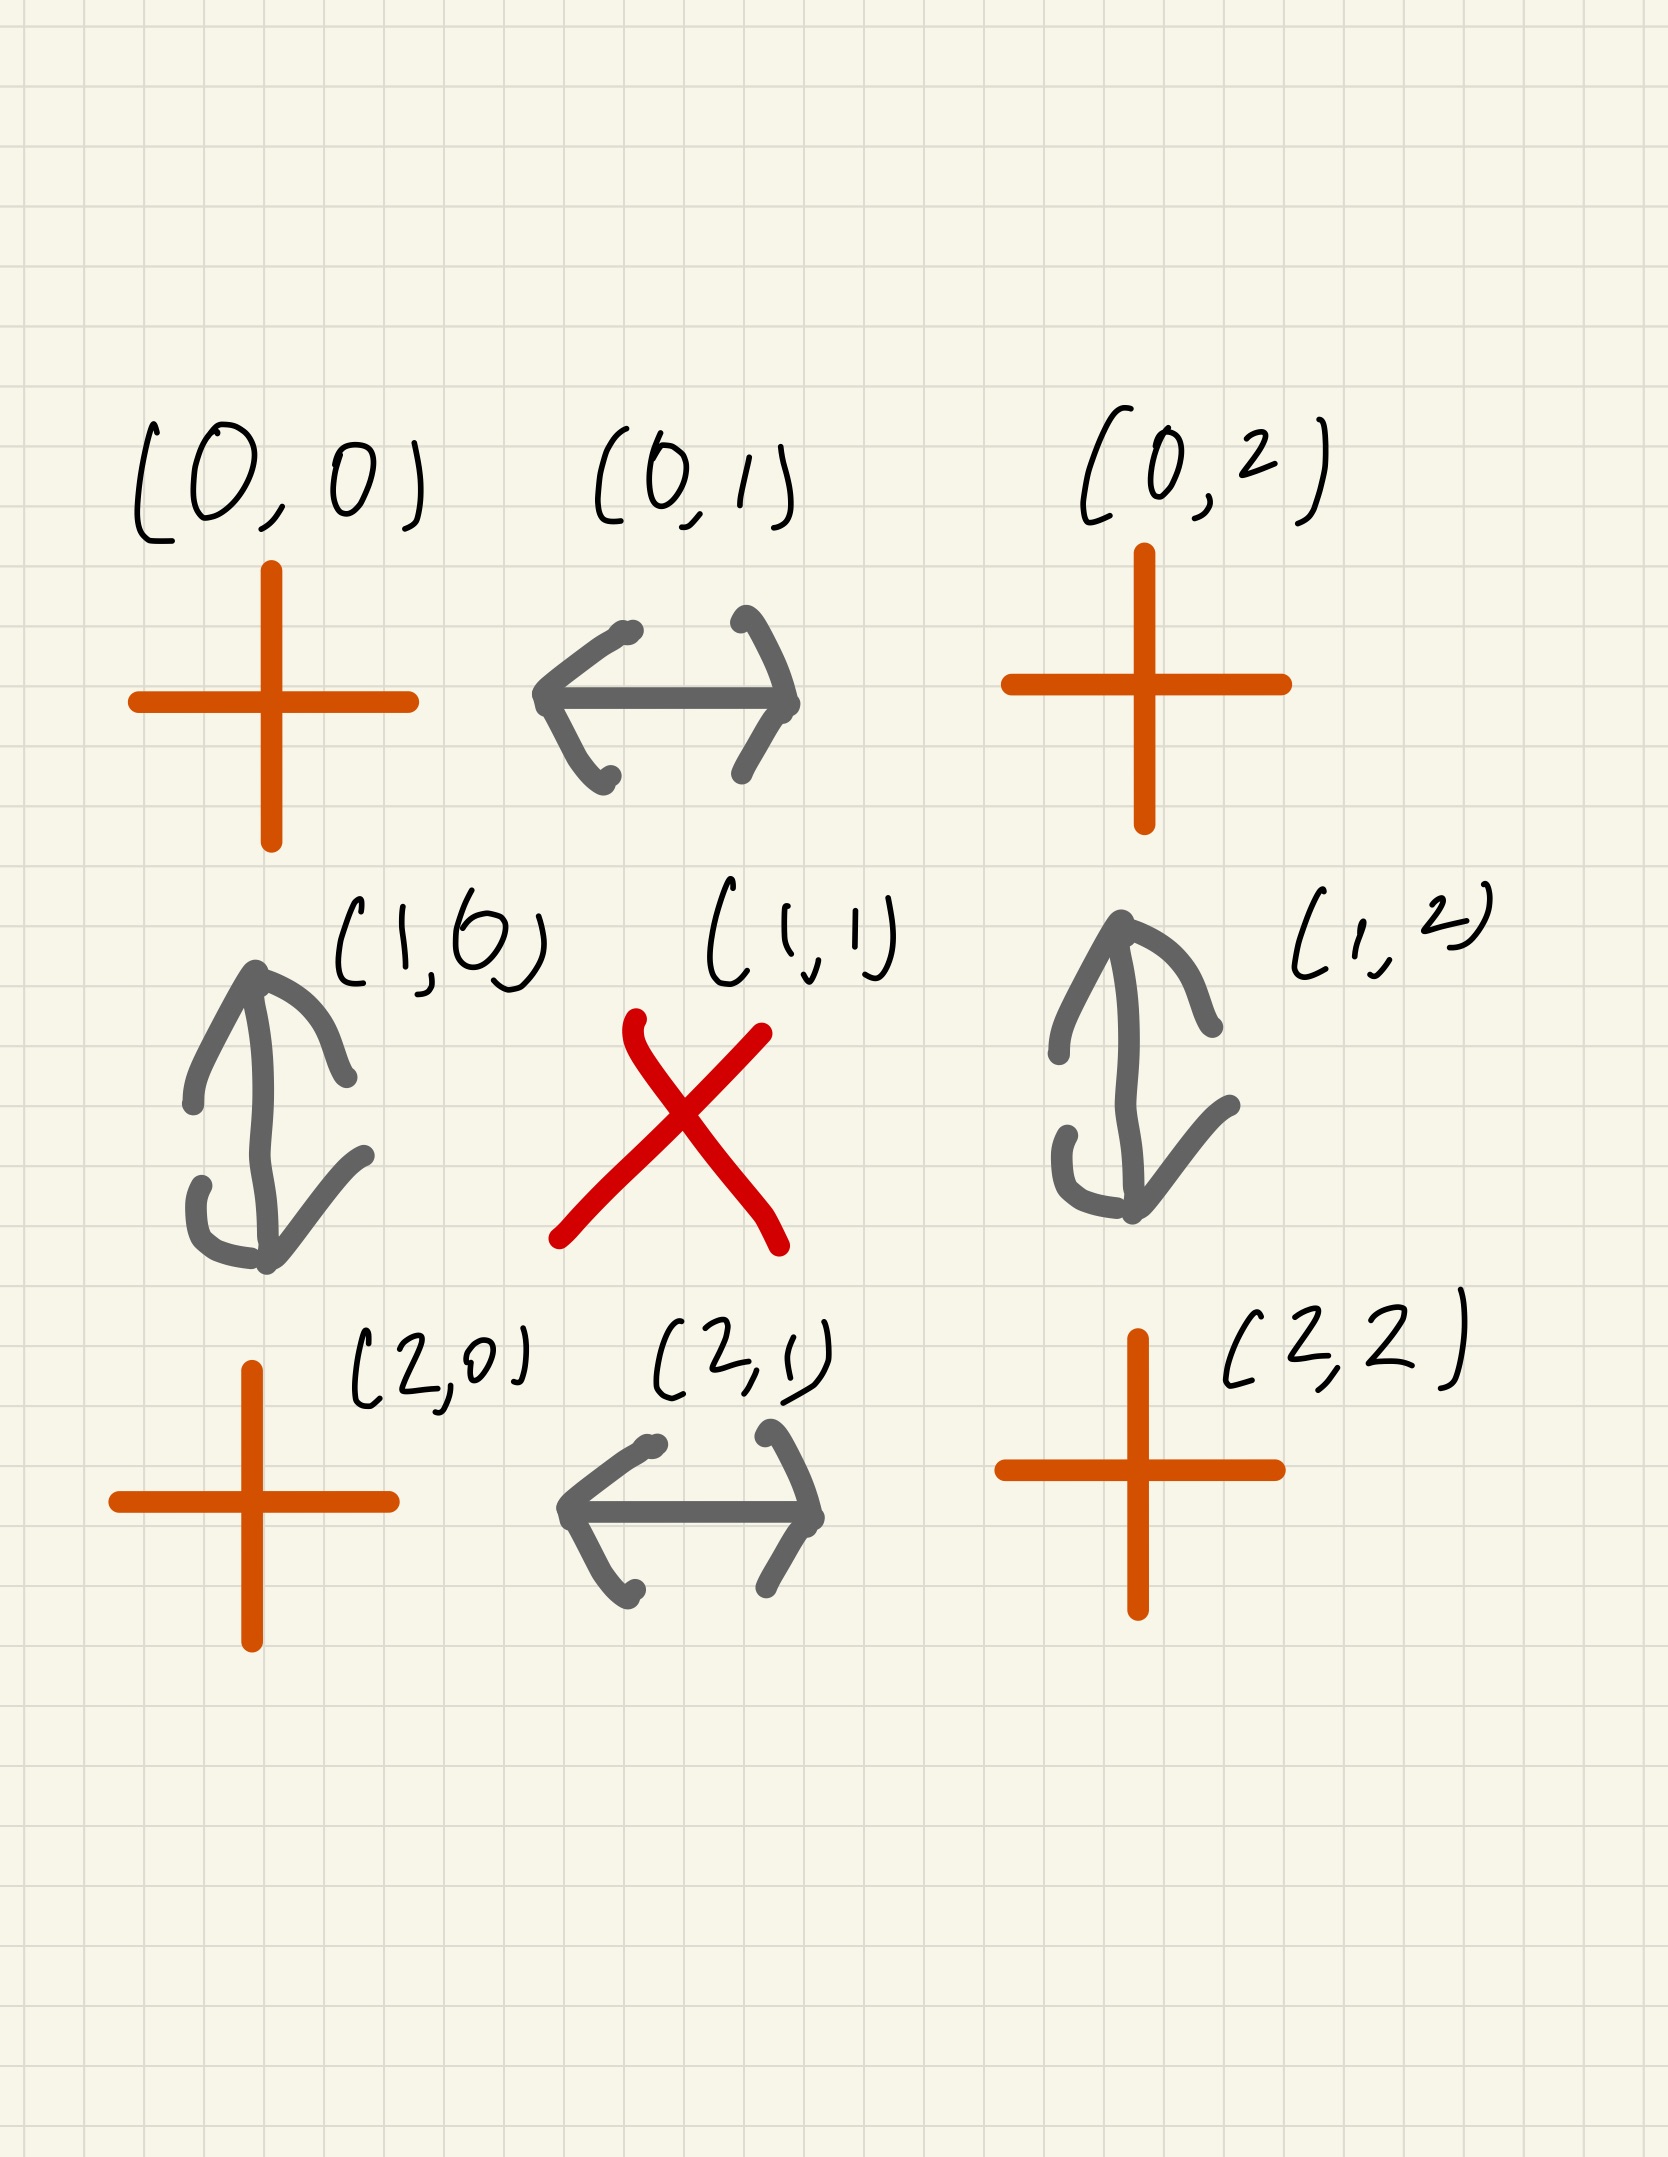 (0,0) (0,1) (0,2)
(1,0) (1,1) (1,2)
(2,0) (2,1) (2,2)